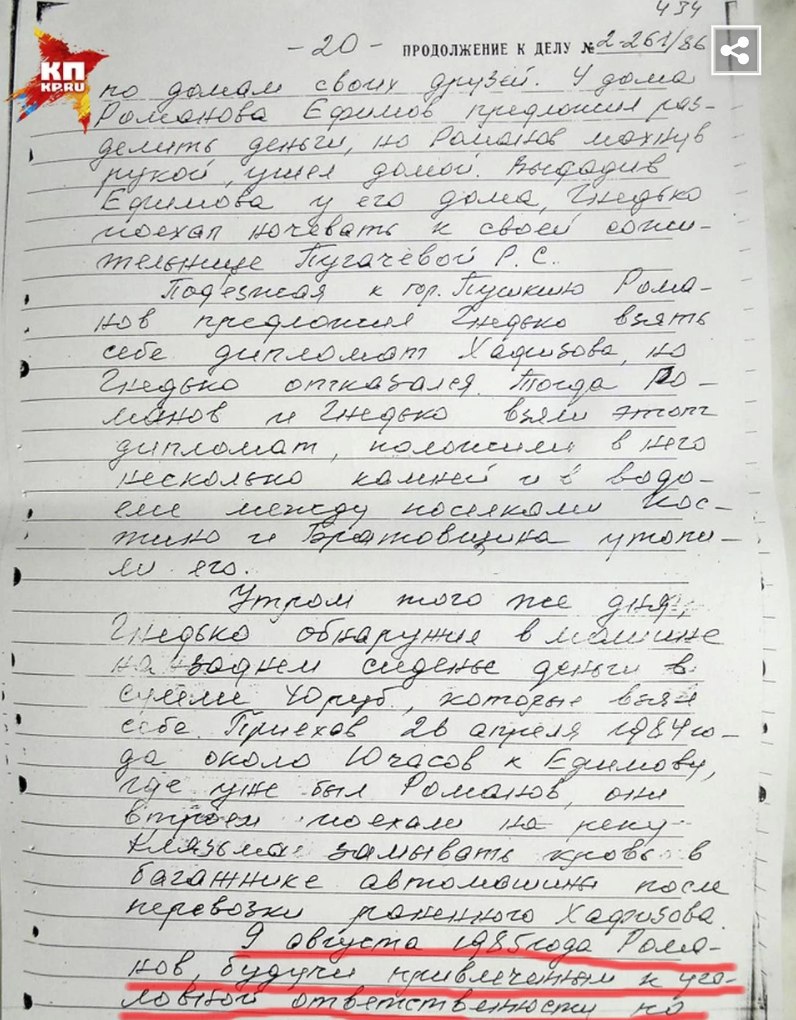 434
- 20 - ПРОДОЛЖЕНИЕ К ДЕЛУ № 2-261/86
КП
KP.RU
по домам своих друзей. У дома
Романова Ефимов предложил раз-
делить деньги, но Романов махнув
рукой, ушел домой. Высадив
Ефимова у его дома, Гнедько
поехал ночевать к своей сожи-
тельнице Пугачевой Р.С.
Подезжая к гор. Пушкино Рома-
нов предложил Гнедько взять
себе дипломат Хафизова, но
Гнедько отказался. Тогда Ро-
манов и Гнедько взяли этот
дипломат, положили в него
несколько камней и в водо-
еме между поселками Кос-
тино и Братовщина утопи-
ли его.
Утром того же дня,
Гнедько обнаружил в машине
на заднем сиденье деньги в
сумме 40 руб., которые взял
себе. Приехав 26 апреля 1984 го-
да около 10 часов к Ефимову,
где уже был Романов, они
втроем поехали на реку
Клязьма замывать кровь в
багажнике автомашины после
перевозки раненного Хафизова.
9 августа 1985 года Рома-
нов, будучи привлеченным к уго-
ловной ответственности по